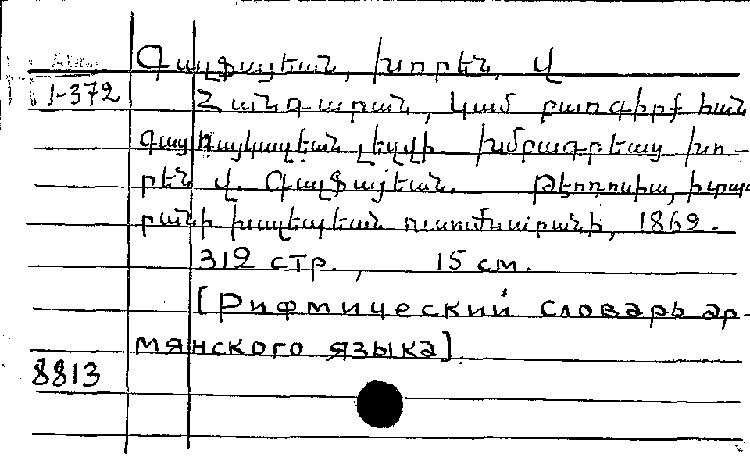 Գալֆայեան, Խորէն, Վ
1-372
Հանգարան, կամ բառգիրք հան
գաց հայկական լեզվի Խմբագրեաց Խո-
րէն Վ. Գալֆայեան. Թէոդոսիա, ի տպա
րանի խալիպեան ուսումնարանի, 1862.
312 стр., 15 см.
[Рифмический словарь ар-
мянского языка]
8813